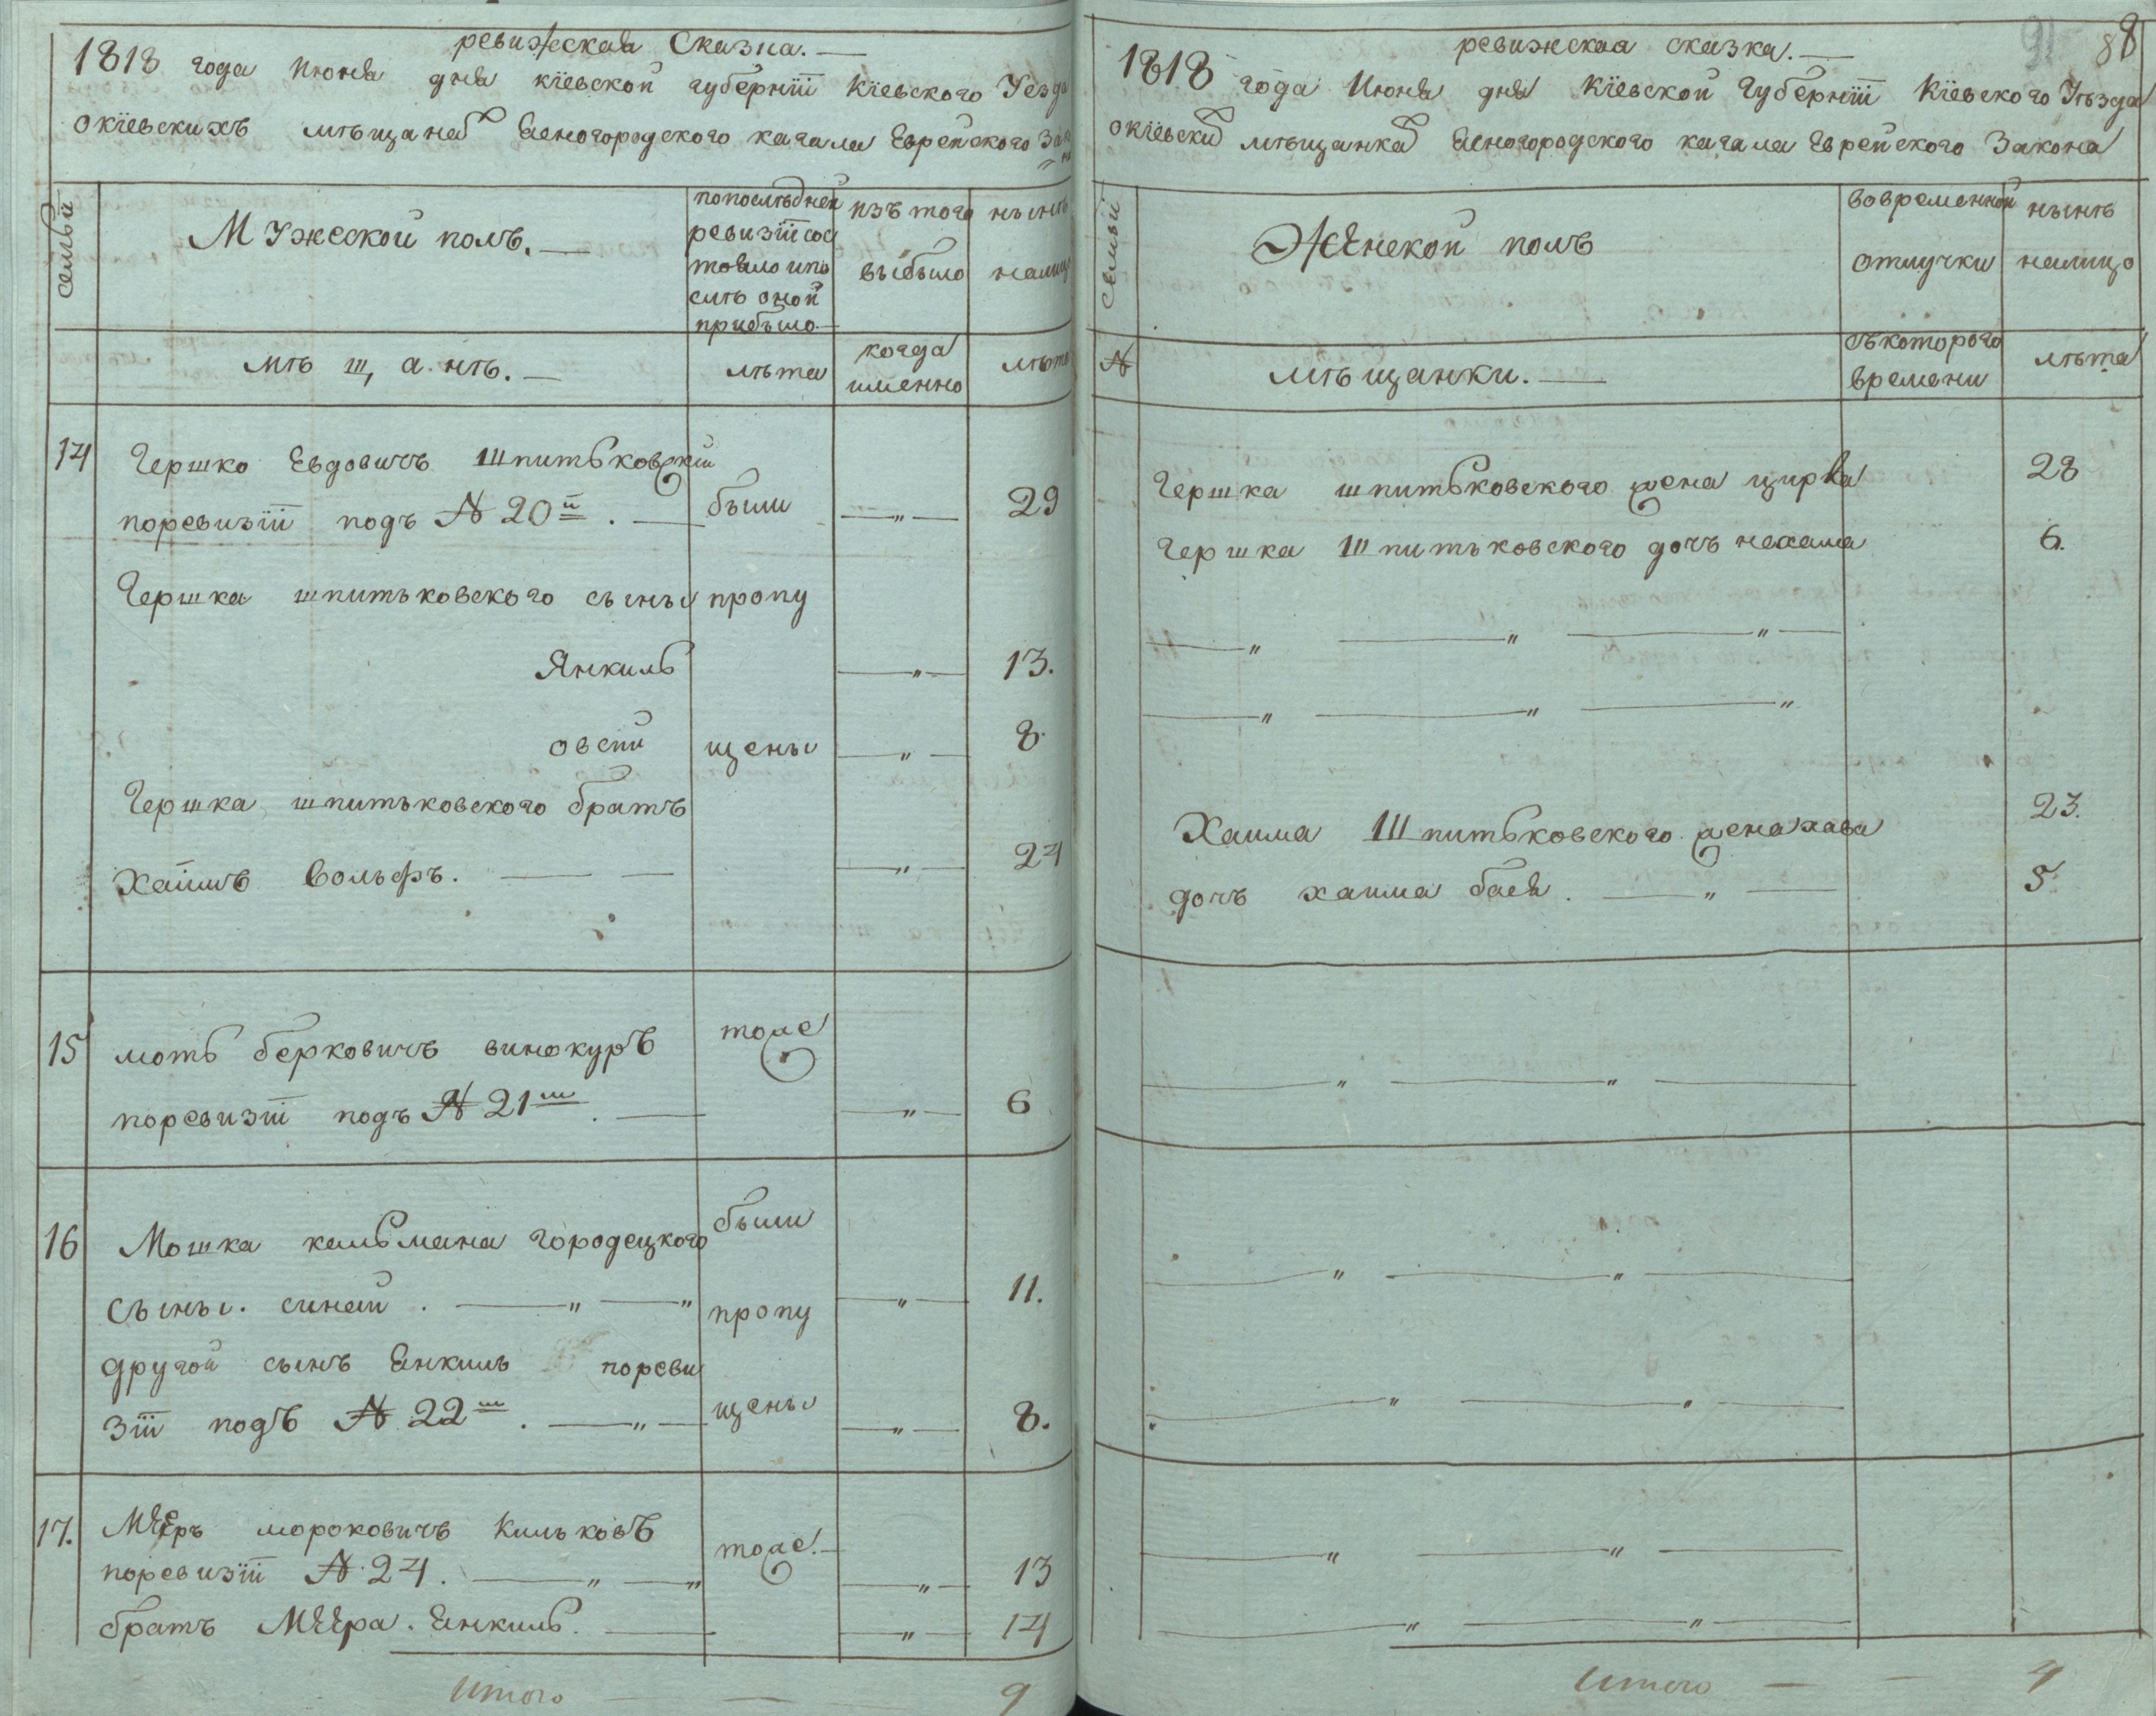 ревижская Сказка.
1818 года Июня дня кіевской губерніи Кіевского Уезда
окіевскихъ мѣщанъ Ясногородского кагала Еврейского Зако
на
семьи
Мужеской полъ.
попослѣдней
ревизіи сос
тояло ипо
слѣ оной
прибыло
изъ того
выбыло
нынѣ
налицо
мѣщанѣ.
лѣта
когда
именно
лѣта
14
Гершко Евдовичъ Шпитьковскій
поревизіи подъ № 20й.
были
29
Гершка шпитьковского сыны
пропу
Янкиль
13.
овсій
щены
8.
Гершка шпитьковского братъ
Хаимъ Вольфъ.
24
15
моть берковичъ винокуръ
тоже
поревизіи подъ № 21м.
6
16
Мошка кальмана городецкого
были
сыны. синай.
пропу
11.
другой сынъ Енкиль пореви
зіи подъ № 22м.
щены
8.
17.
Мееръ морковичъ Кильковъ
тоже.
поревизіи № 24.
13
братъ Меера. Енкиль.
14
Итого
9
88
ревижская сказка.
1818 года Июня дня Кіевской Губерніи Кіевского Уѣзда
окіевски мѣщанка Ясногородского кагала Еврейского Закона
семьи
Женской полъ
вовременной
отлучки
нынѣ
налицо
№
мѣщанки.
съкоторого
времени
лѣта
Гершка шпитьковского жена цирва
28
Гершка Шпитьковского дочъ нехама
6.
Хаима Шпитьковского жена хава
23.
дочъ хаима бася.
5
Итого
4